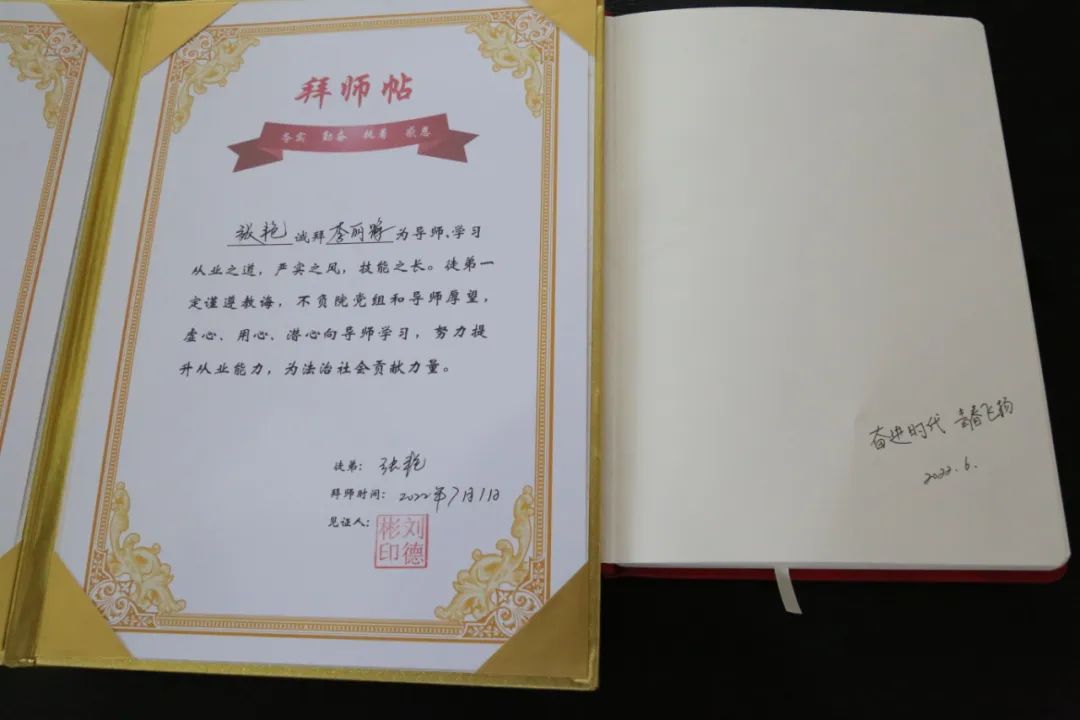 拜师帖
务实 勤奋 执着 感恩
张艳诚拜李丽辉为导师、学习
从业之道，严实之风，技能之长。徒弟一
定谨遵教诲，不负院党组和导师厚望，
虚心、用心、潜心向导师学习，努力提
升从业能力，为法治社会贡献力量。
徒弟：张艳
拜师时间：2022年7月1日
见证人：
刘德彬印
奋进时代 青春飞扬
2022.6.